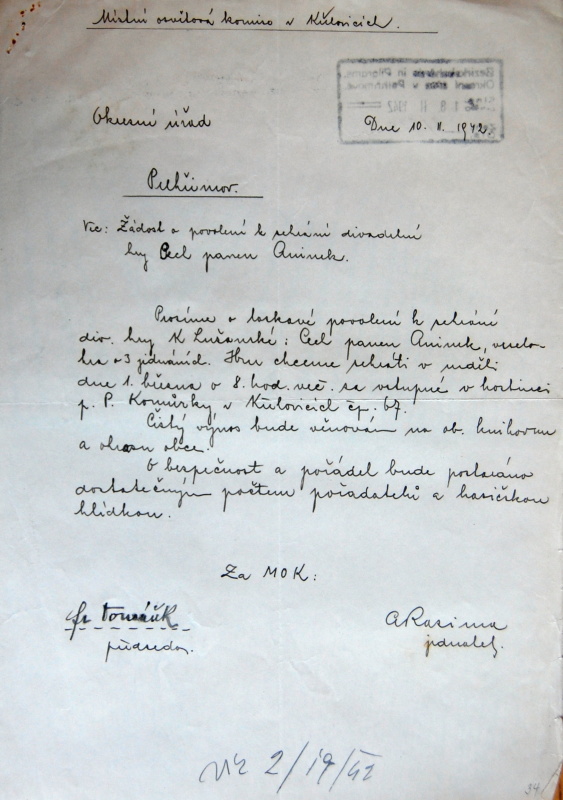 Místní osvětová komise v Křelovicích.
Bezirksbehörde in Pilgrams
Okresní úřad v Pelhřimově
Okresní úřad
Dne 10. II. 1942.
Pelhřimov.
Věc: Žádost o povolení k sehrání divadelní
hry Cech panen Aninek.
Prosíme o laskavé povolení k sehrání
div. hry K Lužanské: Cech panen Aninek, veselo-
hra o 3 jednáních. Hru chceme sehráti v neděli
dne 1. března o 8. hod. več. za vstupné v hostinci
p. P. Komůrky v Křelovicích čp. 67.
Čistý výnos bude věnován na ob. knihovnu
a obec.
O bezpečnost a pořádek bude postaráno
dostatečným počtem pořadatelů a hasičskou
hlídkou.
Za MOK:
Fr Tomášek
předseda.
A Rasima
jednatel.
2/19/42
34